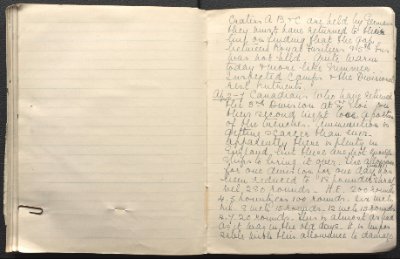 Craters A, B & C are held by Germans
they must have returned to their
finding that the gap
between Royal Fusiliers & 5th Fus
was not held. Quite warm
today & more like summer.
Inspected Camps & the Divisional
Reinforcements.
Ap 7 Canadians who have relieved
the 3rd Division at St Eloi on
their second night lost a portion
of the trenches. Ammunition is
getting scarcer than ever.
Apparently there is plenty in
England, but there are not enough
ships to bring it over. The allowance
for one division for one day has
been reduced to 18 pounder
230 rounds. H.E. 200 rounds
4.5 howitzers 100 rounds. six inch
8 inch 15 rounds. 12 inch 13 rounds
4.7 20 rounds. This is almost as bad
as it was in the old days. It is impos
sible with this allowance to damage